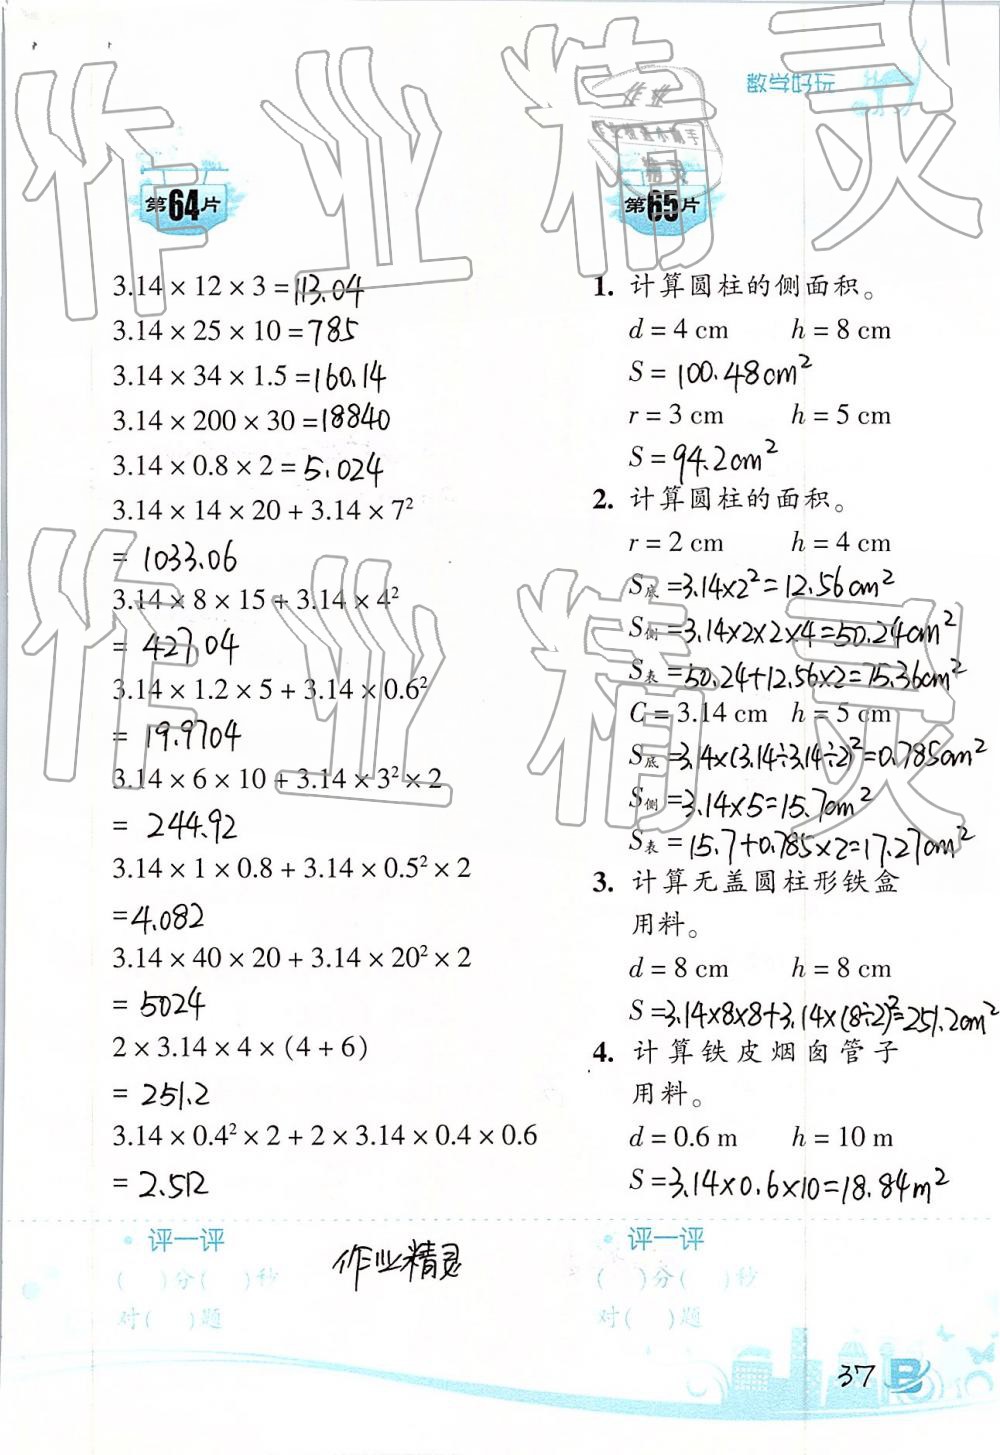 数学好玩
第64片
3.14 × 12 × 3 = 113.04
3.14 × 25 × 10 = 785
3.14 × 34 × 1.5 = 160.14
3.14 × 200 × 30 = 18840
3.14 × 0.8 × 2 = 5.024
3.14 × 14 × 20 + 3.14 × 7²
= 1033.06
3.14 × 8 × 15 + 3.14 × 4²
= 427.04
3.14 × 1.2 × 5 + 3.14 × 0.6²
= 19.9704
3.14 × 6 × 10 + 3.14 × 3² × 2
= 244.92
3.14 × 1 × 0.8 + 3.14 × 0.5² × 2
= 4.082
3.14 × 40 × 20 + 3.14 × 20² × 2
= 5024
2 × 3.14 × 4 × (4 + 6)
= 251.2
3.14 × 0.4² × 2 + 2 × 3.14 × 0.4 × 0.6
= 2.512
评一评
( )分( )秒
对( )题
第65片
1. 计算圆柱的侧面积。
d = 4 cm h = 8 cm
S = 100.48cm²
r = 3 cm h = 5 cm
S = 94.2cm²
2. 计算圆柱的面积。
r = 2 cm h = 4 cm
S底 = 3.14×2² = 12.56cm²
S侧 = 3.14×2×2×4 = 50.24cm²
S表 = 50.24+12.56×2 = 75.36cm²
C = 3.14 cm h = 5 cm
S底 = 3.4×(3.14÷3.14÷2)² = 0.785cm²
S侧 = 3.14×5 = 15.7cm²
S表 = 15.7+0.785×2 = 17.27cm²
3. 计算无盖圆柱形铁盒
用料。
d = 8 cm h = 8 cm
S = 3.14×8×8+3.14×(8÷2)² = 251.2cm²
4. 计算铁皮烟囱管子
用料。
d = 0.6 m h = 10 m
S = 3.14×0.6×10 = 18.84m²
评一评
( )分( )秒
对( )题
作业精灵
37
B
作业精灵
作业精灵
作业
精灵